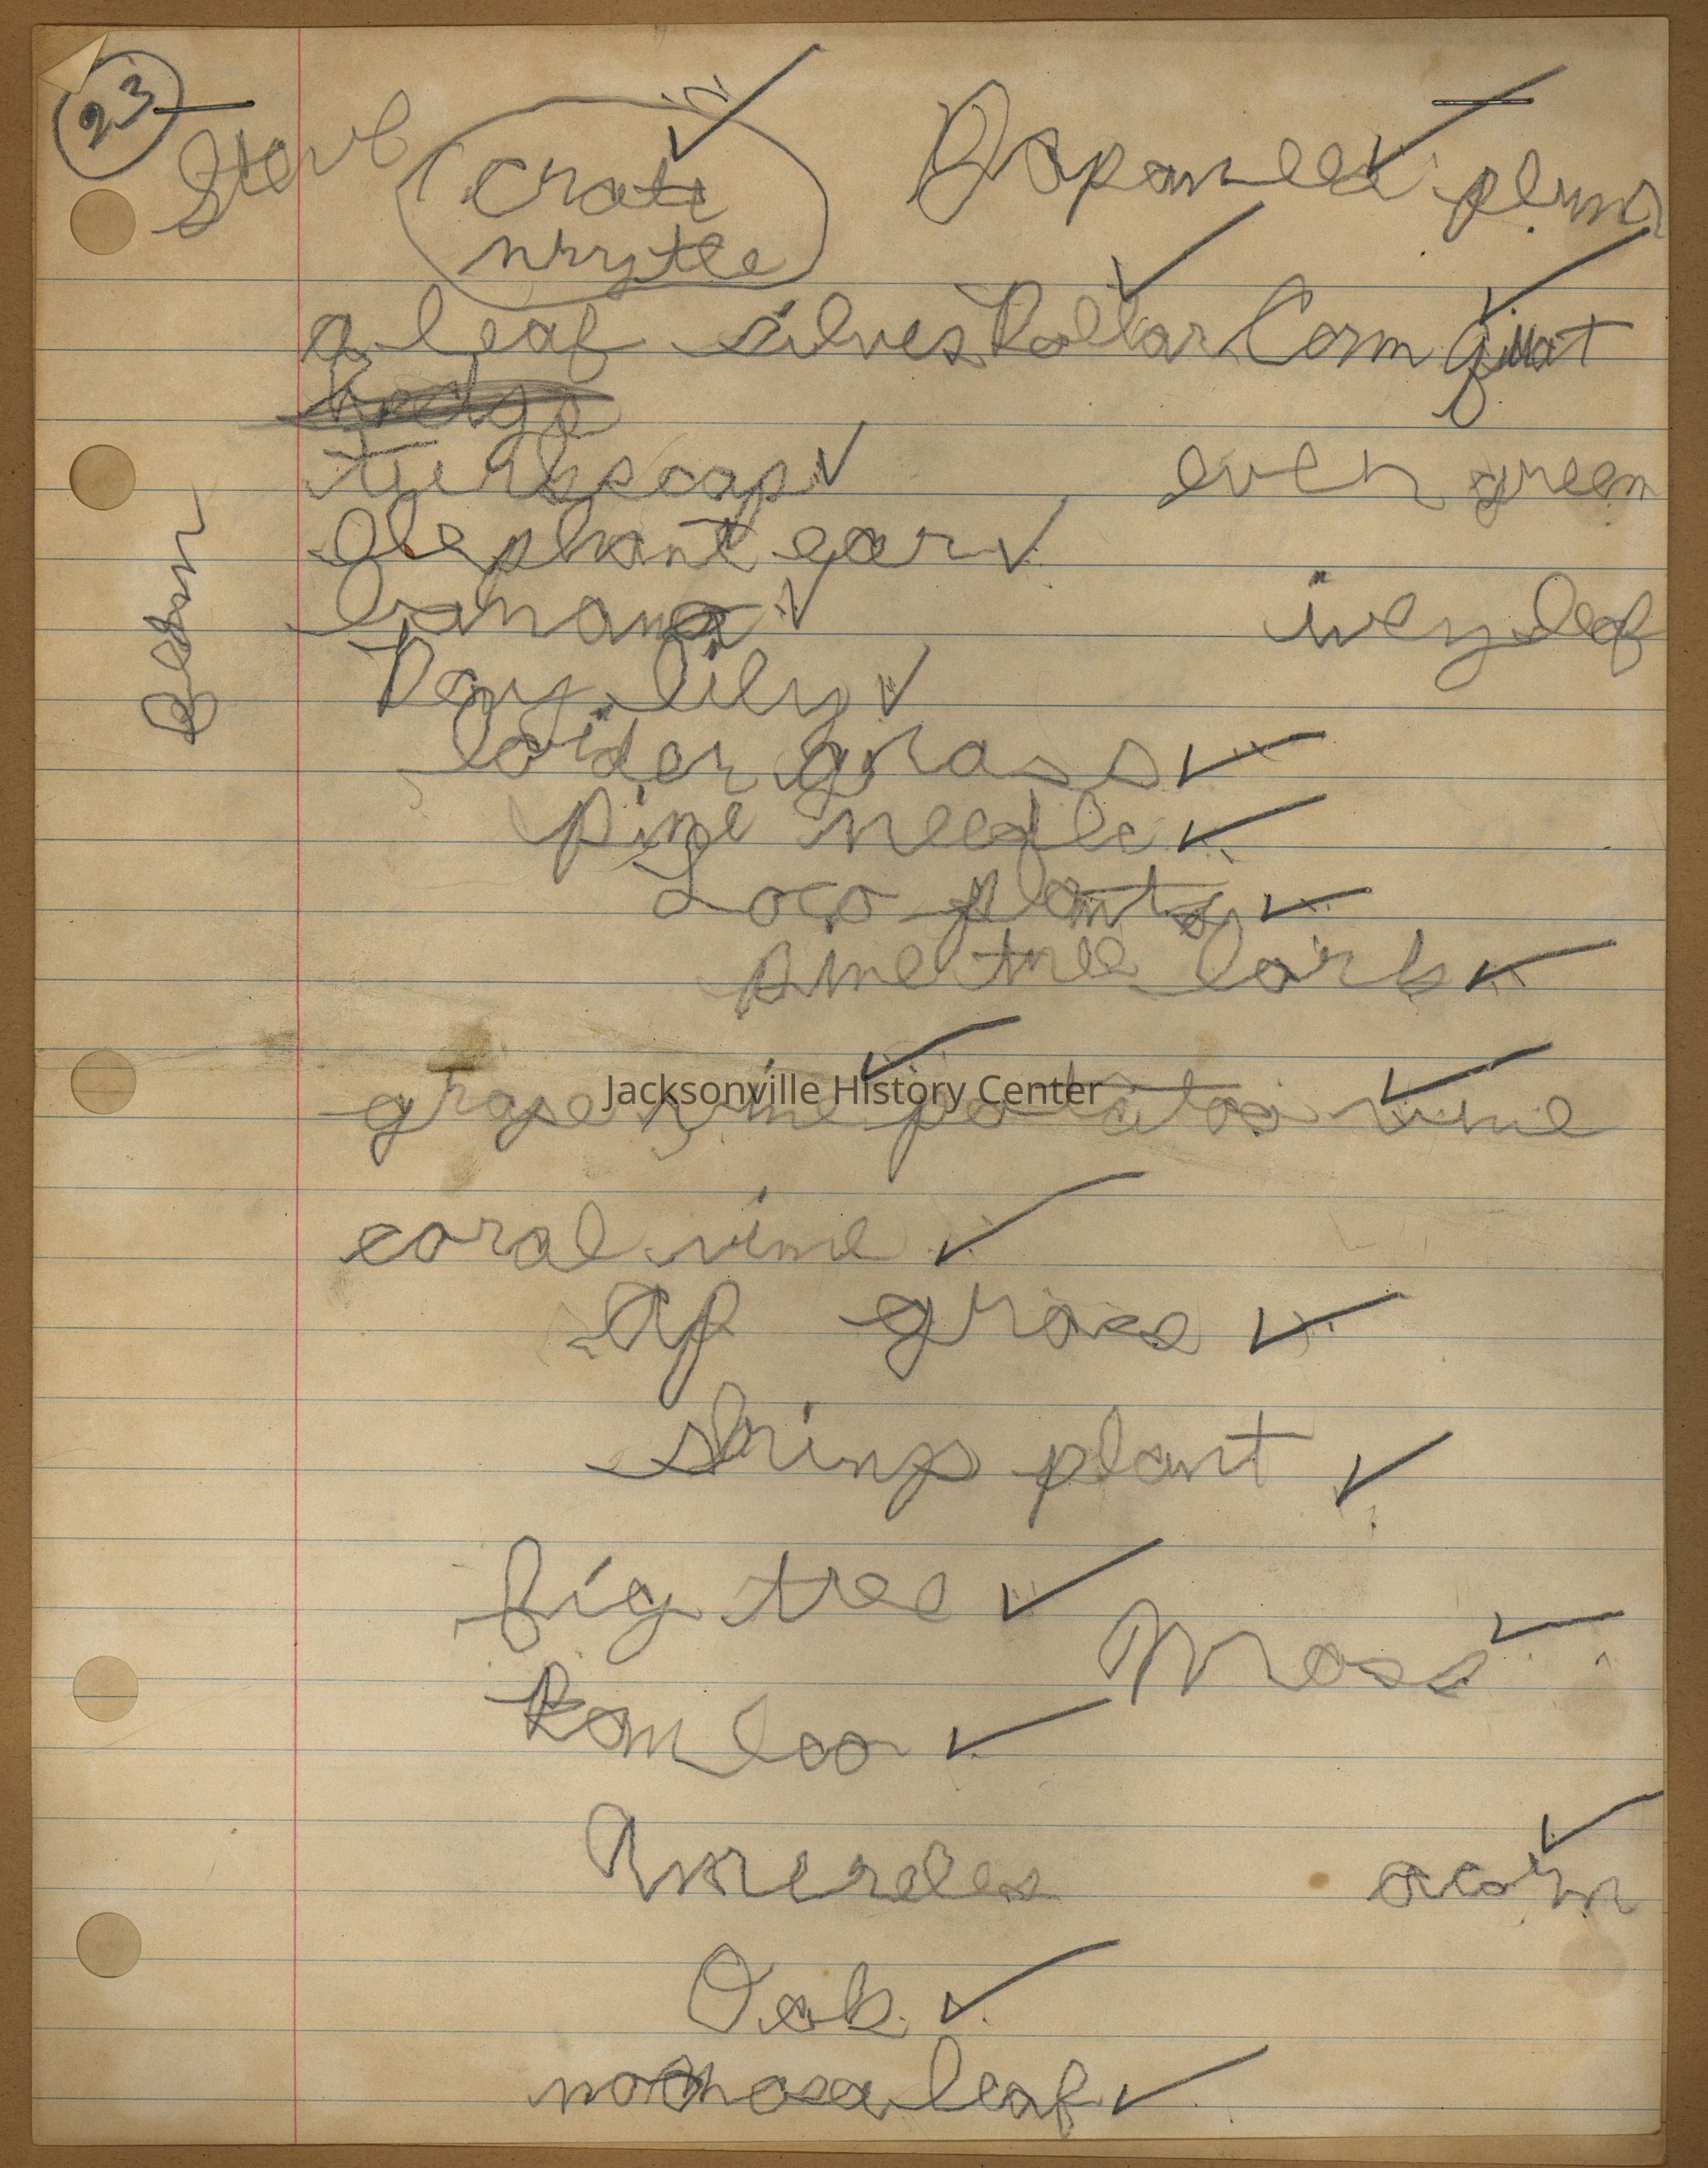 23
Steve
Crate
mrytle
Japaneese plum
a leaf silver Dollar Corn quat
Hedge
turkscap
even green
elephant ear
banana
ivey leaf
Day lily
boider grass
pine needle
Loco plants
pine tree bark
Jacksonville History Center
grape vine potatoe vine
coral vine
grass
plant
fig tree
Moss
Bamboo
acorn
Oak
leaf